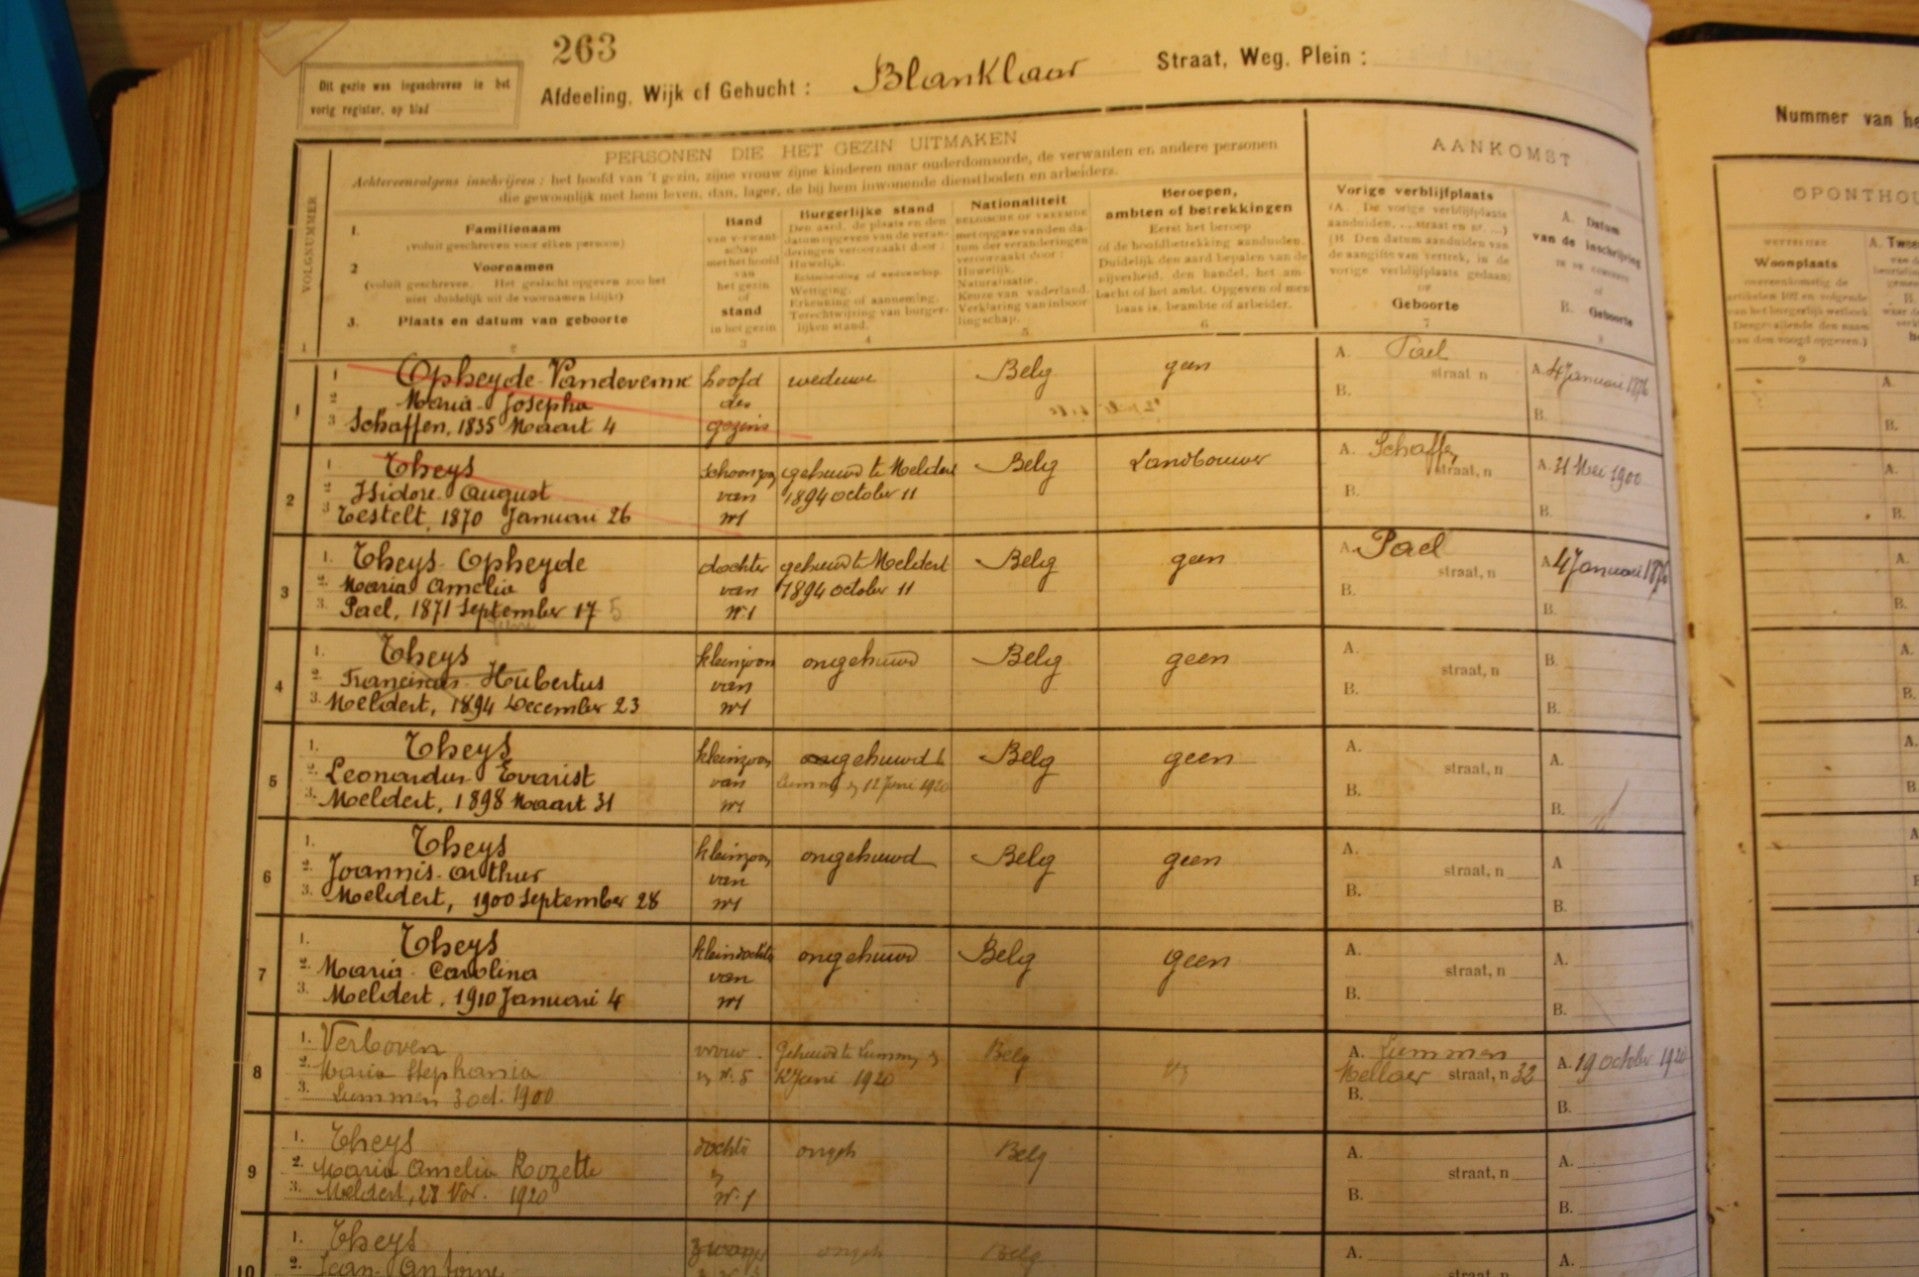 263
Dit gezin was ingeschreven in het
vorig register, op blad
Afdeeling, Wijk of Gehucht : Blanklaar Straat, Weg, Plein :
PERSONEN DIE HET GEZIN UITMAKEN
Achtereenvolgens inschrijven : het hoofd van 't gezin, zijne vrouw zijne kinderen naar ouderdomsorde, de verwanten en andere personen
die gewoonlijk met hem leven, dan, lager, de bij hem inwonende dienstboden en arbeiders.
AANKOMST
VOLGNUMMER
1. Familienaam
(voluit geschreven voor elken persoon)
2 Voornamen
(voluit geschreven. Het geslacht opgeven zoo het
niet duidelijk uit de voornamen blijkt)
3. Plaats en datum van geboorte
Band
van verwant-
schap
met het hoofd
van
het gezin
of
stand
in het gezin
3
Burgerlijke stand
Den aard, de plaats en den
datum opgeven van de veran-
deringen veroorzaakt door :
Huwelijk.
Wettiging.
Erkenning of aanneming.
Terechtwijzing van burger-
lijken stand.
4
Nationaliteit
BELGISCHE OF VREEMDE
met opgave van den da-
tum der veranderingen
veroorzaakt door :
Huwelijk.
Naturalisatie.
Keuze van vaderland.
Verklaring van inboor-
lingschap.
5
Beroepen,
ambten of betrekkingen
Eerst het beroep
of de hoofdbetrekking aanduiden.
Duidelijk den aard bepalen van de
nijverheid, den handel, het am-
bacht of het ambt. Opgeven of men
baas is, beambte of arbeider.
6
Vorige verblijfplaats
(A. De vorige verblijfplaats
aanduiden, ... straat en nr. ...)
(B Den datum aanduiden van
de aangifte van vertrek, in de
vorige verblijfplaats gedaan)
OF
Geboorte
7
A. Datum
van de inschrijving
of
B. Geboorte
8
1
1 Opheyde-Vandevenne hoofd weduwe Belg geen A. Pael A. 4 Januari 1876
2 Maria Josepha des straat n B.
3 Schaffen, 1835 Maart 4 gezins B.
2
1 Theys schoonzoon gehuwd te Meldert Belg Landbouwer A. Schaffen A. 21 Mei 1900
2 Isidore August van 1894 october 11 straat, n
3 Testelt, 1870 Januari 26 nr1 B. B.
3
1. Theys-Opheyde dochter gehuwd te Meldert Belg geen A. Pael A. 4 Januari 1876
2. Maria Amelia van 1894 october 11 straat, n
3. Pael, 1871 September 17 5 nr1 B. B.
4
1. Theys kleinzoon ongehuwd Belg geen A. B.
2. Franciscus Hubertus van straat, n
3. Meldert, 1894 December 23 nr1 B. B.
5
1. Theys kleinzoon ongehuwd te Belg geen A. A.
2. Leonardus Evarist van Lummen 12 Juni 1920 straat, n
3. Meldert, 1898 Maart 31 nr1 B. B.
6
1. Theys kleinzoon ongehuwd Belg geen A. A
2. Joannis-Arthur van straat, n
3. Meldert, 1900 September 28 nr1 B. B.
7
1. Theys kleindochter ongehuwd Belg geen A. A.
2. Maria-Carolina van straat, n
3. Meldert, 1910 Januari 4 nr1 B. B.
8
1. Verboven vrouw Gehuwd te Lummen Belg A. Lummen A. 19 october 1920
2. Maria Stephania Nr. 5 12 Juni 1920 Mellaer straat, n 32
3. Lummen 3 oct. 1900 B. B.
9
1. Theys dochter ongeh Belg A. A.
2. Maria Amelia Rozette straat, n
3. Meldert, 28 Nov. 1920 Nr. 1 B. B.
10
1. Theys ongeh Belg A. A.
2. Jean-Antoine straat, n
Nummer van he
OPONTHOU
Woonplaats
overeenkomstig de
artikelen 102 en volgende
van het burgerlijk wetboek
(Desgevallende den naam
van den voogd opgeven.)
9
A. Twee
A.
B.
A.
B.
A.
B.
A.
B.
A.
B.
A.